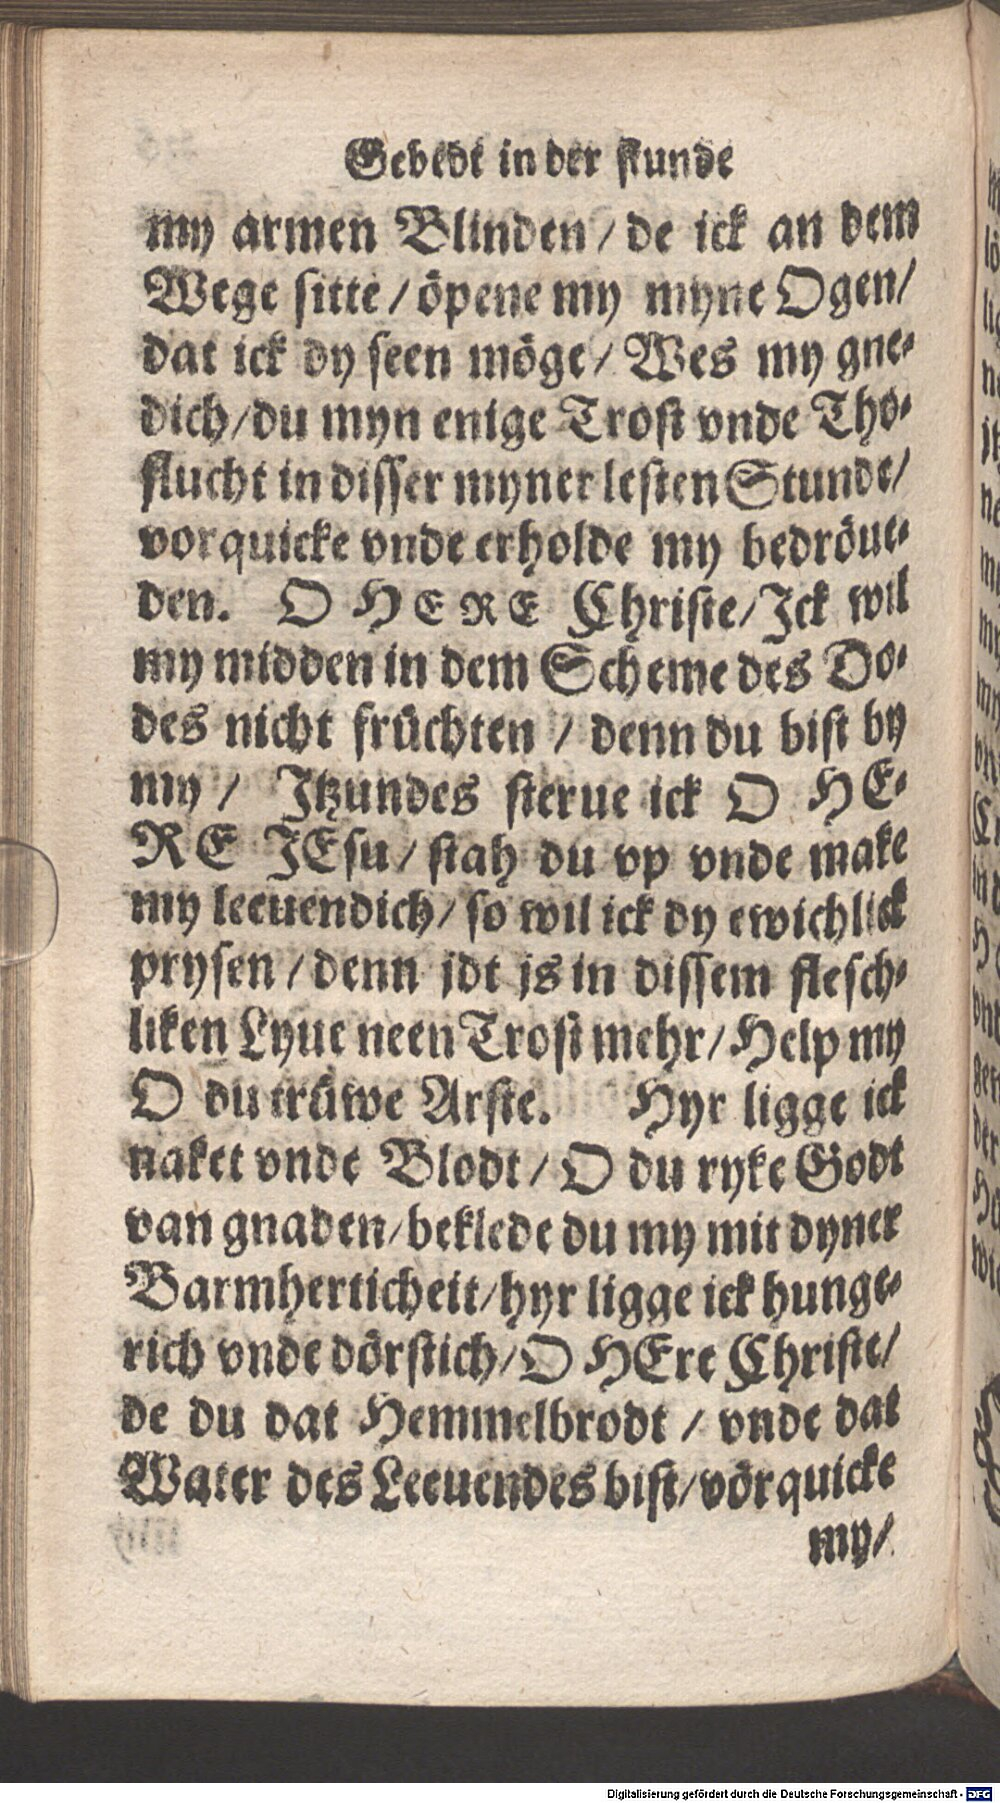 Gebedt in der stunde
my armen Blinden / de ick an dem
Wege sitte / öpene my myne Ogen/
dat ick dy seen möge / Wes my gne-
dich/du myn enige Trost vnde Tho-
flucht in disser myner lesten Stunde/
vorquicke vnde erholde my bedröue-
den. O HERE Christe/Ick wil
my midden in dem Scheme des Do-
des nicht früchten / denn du bist by
my / Itzundes sterue ick O HE-
RE JEsu / stah du vp vnde make
my leeuendich/ so wil ick dy ewichlick
prysen / denn jdt js in dissem flesch-
liken Lyue neen Trost mehr/ Help my
O du trüwe Arste. Hyr ligge ick
naket vnde Blodt / O du ryke Godt
van gnaden/beklede du my mit dyner
Barmherticheit/hyr ligge ick hunge-
rich vnde dörstich/O HEre Christe/
de du dat Hemmelbrodt / vnde dat
Water des Leeuendes bist/vörquicke
my/
Digitalisierung gefördert durch die Deutsche Forschungsgemeinschaft - DFG